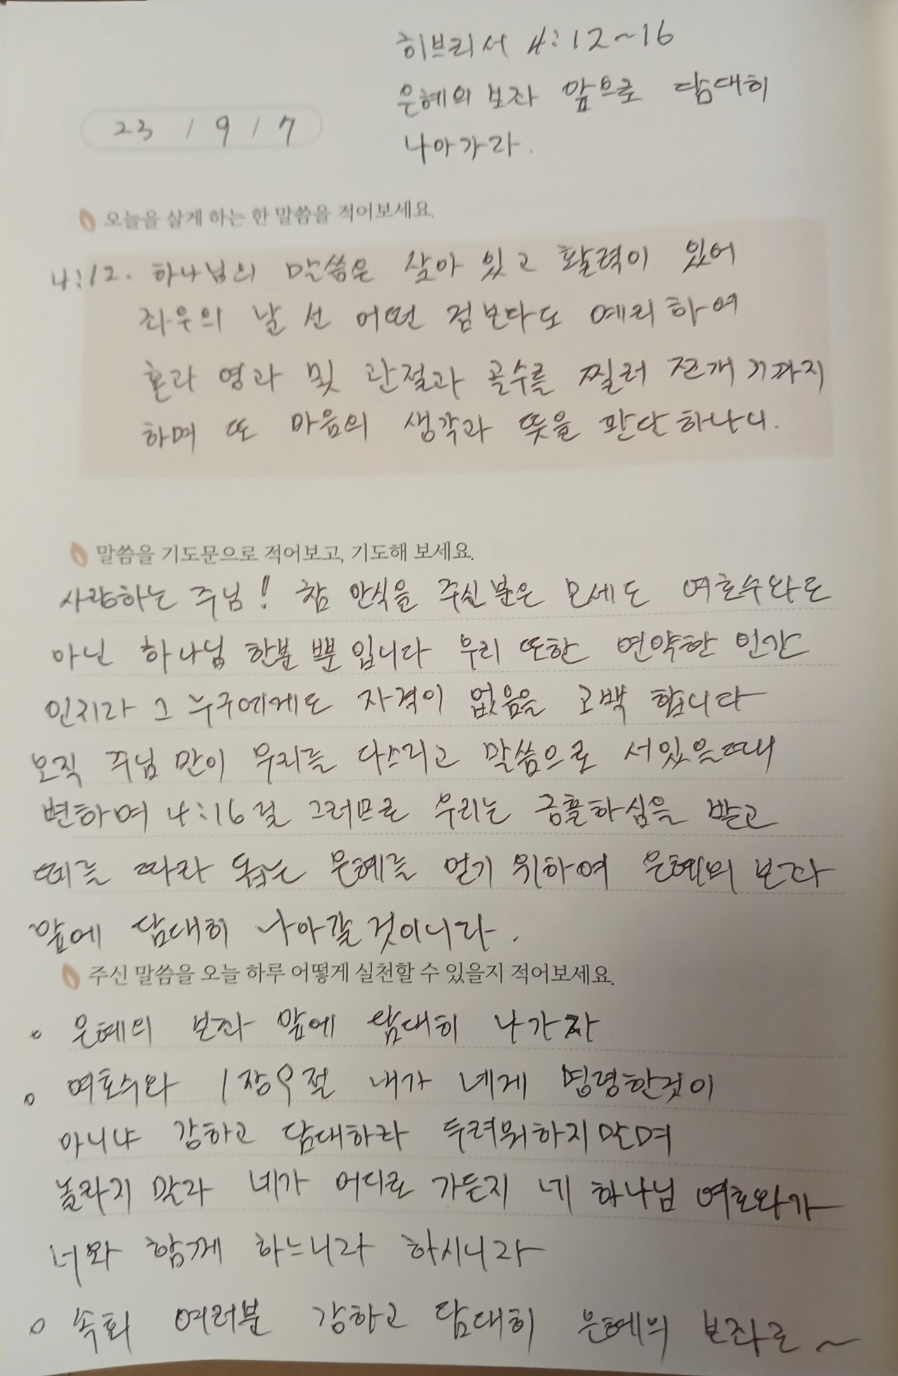 히브리서 4:12~16
은혜의 보좌 앞으로 담대히
나아가라.
23 / 9 / 7
오늘을 살게 하는 한 말씀을 적어보세요.
4:12. 하나님의 말씀은 살아 있고 활력이 있어
좌우의 날 선 어떤 검보다도 예리하여
혼과 영과 및 관절과 골수를 찔러 쪼개기까지
하며 또 마음의 생각과 뜻을 판단하나니.
말씀을 기도문으로 적어보고, 기도해 보세요.
사랑하는 주님! 참 안식을 주신 분은 모세도 여호수와도
아닌 하나님 한분 뿐입니다 우리 또한 연약한 인간
인지라 그 누구에게도 자격이 없음을 고백 합니다
오직 주님 만이 우리를 다스리고 말씀으로 서있을때
변하여 4:16절 그러므로 우리는 긍휼하심을 받고
때를 따라 돕는 은혜를 얻기 위하여 은혜의 보좌
앞에 담대히 나아갈것이니라.
주신 말씀을 오늘 하루 어떻게 실천할 수 있을지 적어보세요.
◦ 은혜의 보좌 앞에 담대히 나가자
◦ 여호수와 1장9절 내가 네게 명령한것이
아니냐 강하고 담대하라 두려워하지말며
놀라지 말라 네가 어디로 가든지 네 하나님 여호와가
너와 함께 하느니라 하시니라
◦ 속회 여러분 강하고 담대히 은혜의 보좌로~